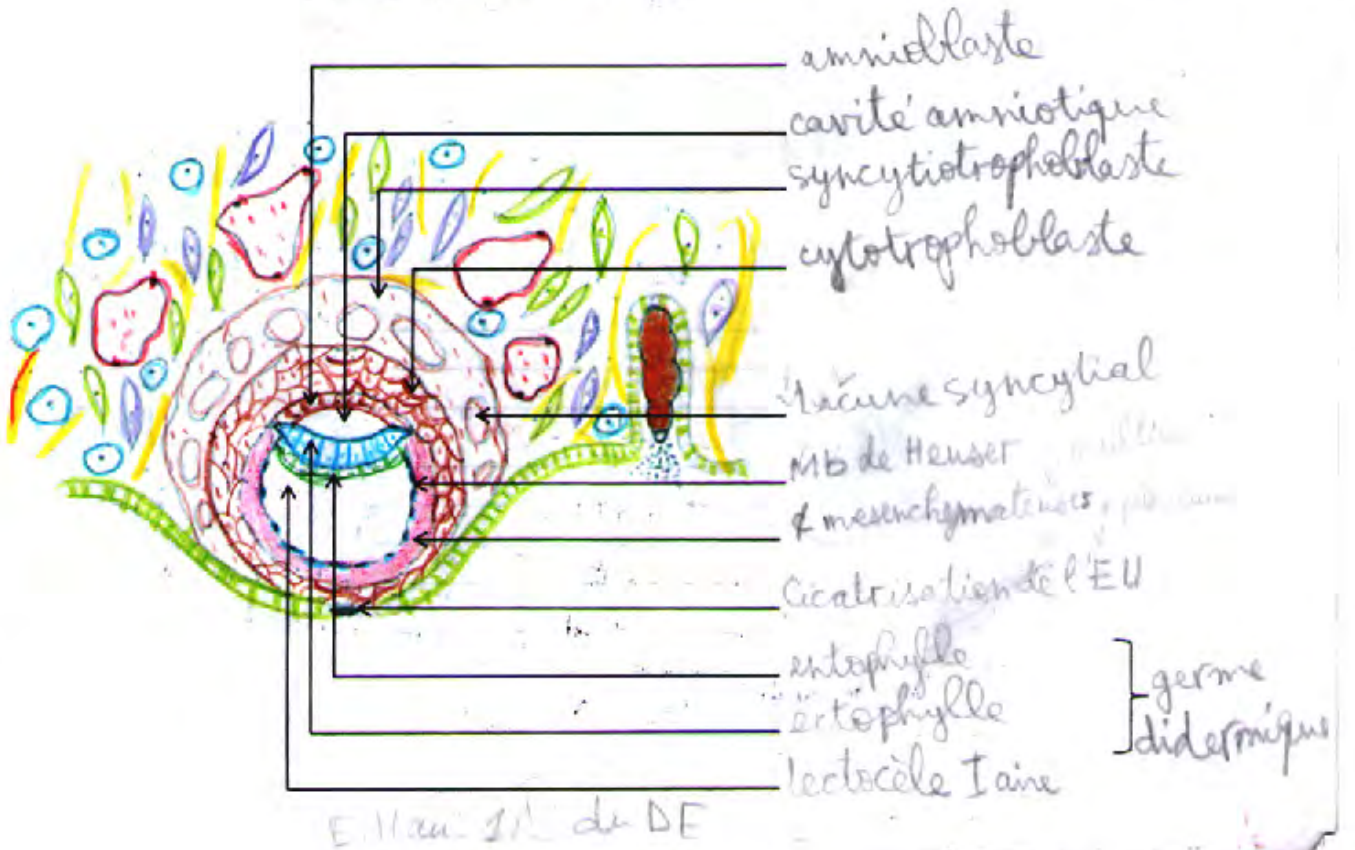 amnioblaste
cavité amniotique
syncytiotrophoblaste
cytotrophoblaste
lacune syncytial
Mb de Heuser
mesenchymateuses
Cicatrisation de l'EU
entophylle
ectophylle
germe
didermique
lectocèle Iaire
du DE